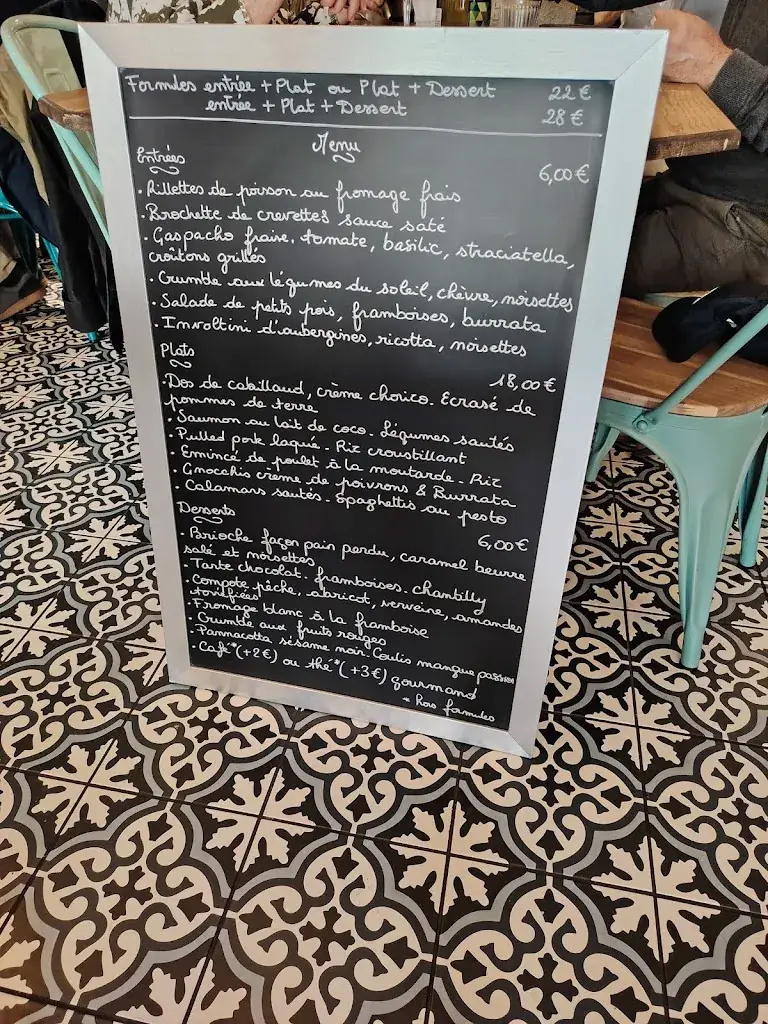 Formules entrée + Plat ou Plat + Dessert 22 €
entrée + Plat + Dessert 28 €
Menu
Entrées 6,00 €
• Rillettes de poisson au fromage frais
• Brochette de crevettes sauce saté
• Gaspacho fraise, tomate, basilic, straciatella,
croûtons grillés
• Crumble aux légumes du soleil, chèvre, noisettes
• Salade de petits pois, framboises, burrata
• Involtini d'aubergines, ricotta, noisettes
Plats 18,00 €
• Dos de cabillaud, crème chorizo. Ecrasé de
pommes de terre
• Saumon au lait de coco. Légumes sautés
• Pulled pork laqué. Riz croustillant
• Emincé de poulet à la moutarde. Riz
• Gnocchis crème de poivrons & Burrata
• Calamars sautés. Spaghettis au pesto
Desserts 6,00 €
• Brioche façon pain perdu, caramel beurre
salé et noisettes
• Tarte chocolat. framboises. chantilly
• Compote pêche, abricot, verveine, amandes
torréfiées
• Fromage blanc à la framboise
• Crumble aux fruits rouges
• Pannacotta sésame noir. Coulis mangue passion
• Café* (+2€) ou thé* (+3€) gourmand
* hors formules